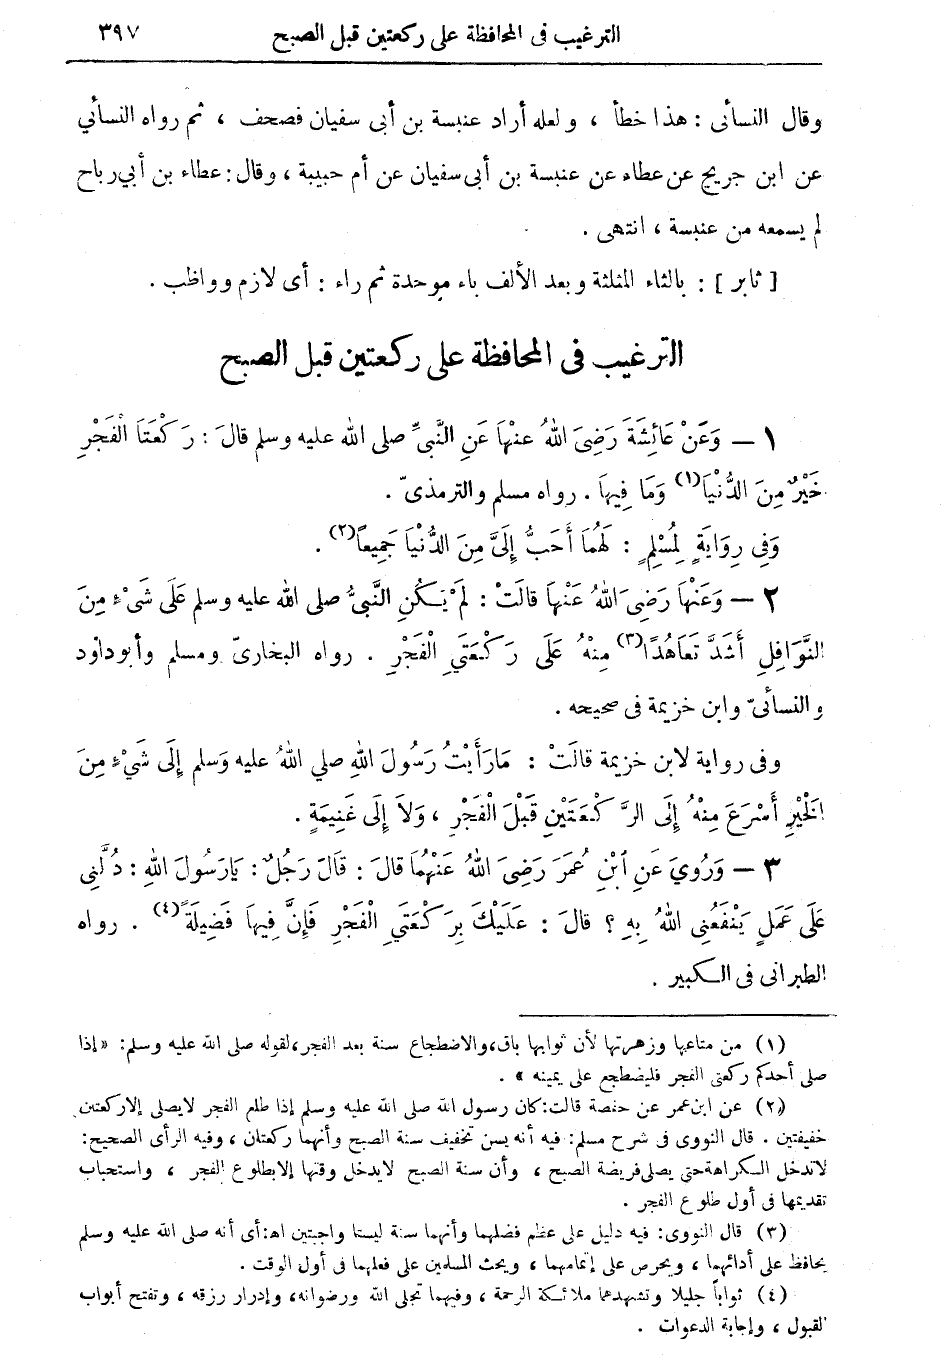 الترغيب فى المحافظة على ركعتين قبل الصبح ٣٩٧
وقال النسأئى : هذا خطأ ، ولعله أراد عنبسة بن أبى سفيان فصحف ، ثم رواه النسأئي
عن ابن جريج عن عطاء عن عنبسة بن أبى سفيان عن أم حبيبة ، وقال : عطاء بن أبي رباح
لم يسمعه من عنبسة ، انتهى .
[ ثابر ] : بالثاء المثلثة وبعد الألف باء موحدة ثم راء : أى لازم وواظب .
الترغيب فى المحافظة على ركعتين قبل الصبح
١ — وَعَنْ عَائِشَةَ رَضِىَ اللهُ عنْهَا عَنِ النَّبيِّ صلى الله عليه وسلم قالَ : رَكْعَتَا الْفَجْرِ
خَيْرٌ مِنَ الدُّنْيَا(١) وَمَا فِيهَا . رواه مسلم والترمذىّ .
وَفِى رِوَايَةٍ لِمُسْلِمٍ : لَهُمَا أَحَبُّ إِلَىَّ مِنَ الدُّنْيَا جَمِيعاً(٢) .
٢ — وَعَنْهَا رَضِىَ اللهُ عَنْهَا قالَتْ : لَمْ يَكُنِ النَّبىُّ صلى الله عليه وسلم عَلَى شَىْءٍ مِنَ
النَّوَافِلِ أَشَدَّ تَعَاهُدًا(٣) مِنْهُ عَلَى رَكْعَتَيِ الْفَجْرِ . رواه البخارىّ ومسلم وأبو داود
والنسأئىّ وابن خزيمة فى صحيحه .
وفى رواية لابن خزيمة قالَتْ : مَا رَأَيْتُ رَسُولَ اللهِ صلي اللهُ عليه وَسلم إِلَى شَيْءٍ مِنَ
الْخَيْرِ أَسْرَعَ مِنْهُ إِلَى الرَّكْعَتَيْنِ قَبْلَ الْفَجْرِ ، وَلاَ إِلَى غَنِيمَةٍ .
٣ — وَرُوِيَ عَنِ ابْنِ عُمَرَ رَضِىَ اللهُ عَنْهُمَا قالَ : قَالَ رَجُلٌ : يَا رَسُولَ اللهِ : دُلَّنِى
عَلَى عَمَلٍ يَنْفَعُنِى اللهُ بِهِ ؟ قالَ : عَلَيْكَ بِرَكْعَتَيِ الْفَجْرِ فَإِنَّ فِيهَا فَضِيلَةً(٤) . رواه
الطبرانى فى الكبير .
(١) من متاعها وزهرتها لأن ثوابها باق، والاضطجاع سنة بعد الفجر، لقوله صلى الله عليه وسلم : « إذا
صلى أحدكم ركعتى الفجر فليضطجع على يمينه » .
(٢) عن ابن عمر عن حفصة قالت : كان رسول الله صلى الله عليه وسلم إذا طلع الفجر لا يصلى إلا ركعتين
خفيفتين . قال النووى فى شرح مسلم : فيه أنه يسن تخفيف سنة الصبح وأنهما ركعتان ، وفيه الرأى الصحيح :
لا تدخل الكراهة حتى يصلى فريضة الصبح ، وأن سنة الصبح لا يدخل وقتها إلا بطلوع الفجر ، واستحباب
تقديمها فى أول طلوع الفجر .
(٣) قال النووى : فيه دليل على عظم فضلهما وأنهما سنة ليستا واجبتين اه : أى أنه صلى الله عليه وسلم
يحافظ على أدائهما ، ويحرص على إتمامهما ، ويحث المسلمين على فعلهما فى أول الوقت .
(٤) ثواباً جليلا وتشهدهما ملائكة الرحمة ، وفيهما تجلى الله ورضوانه، وإدرار رزقه ، وتفتح أبواب
القبول ، وإجابة الدعوات .